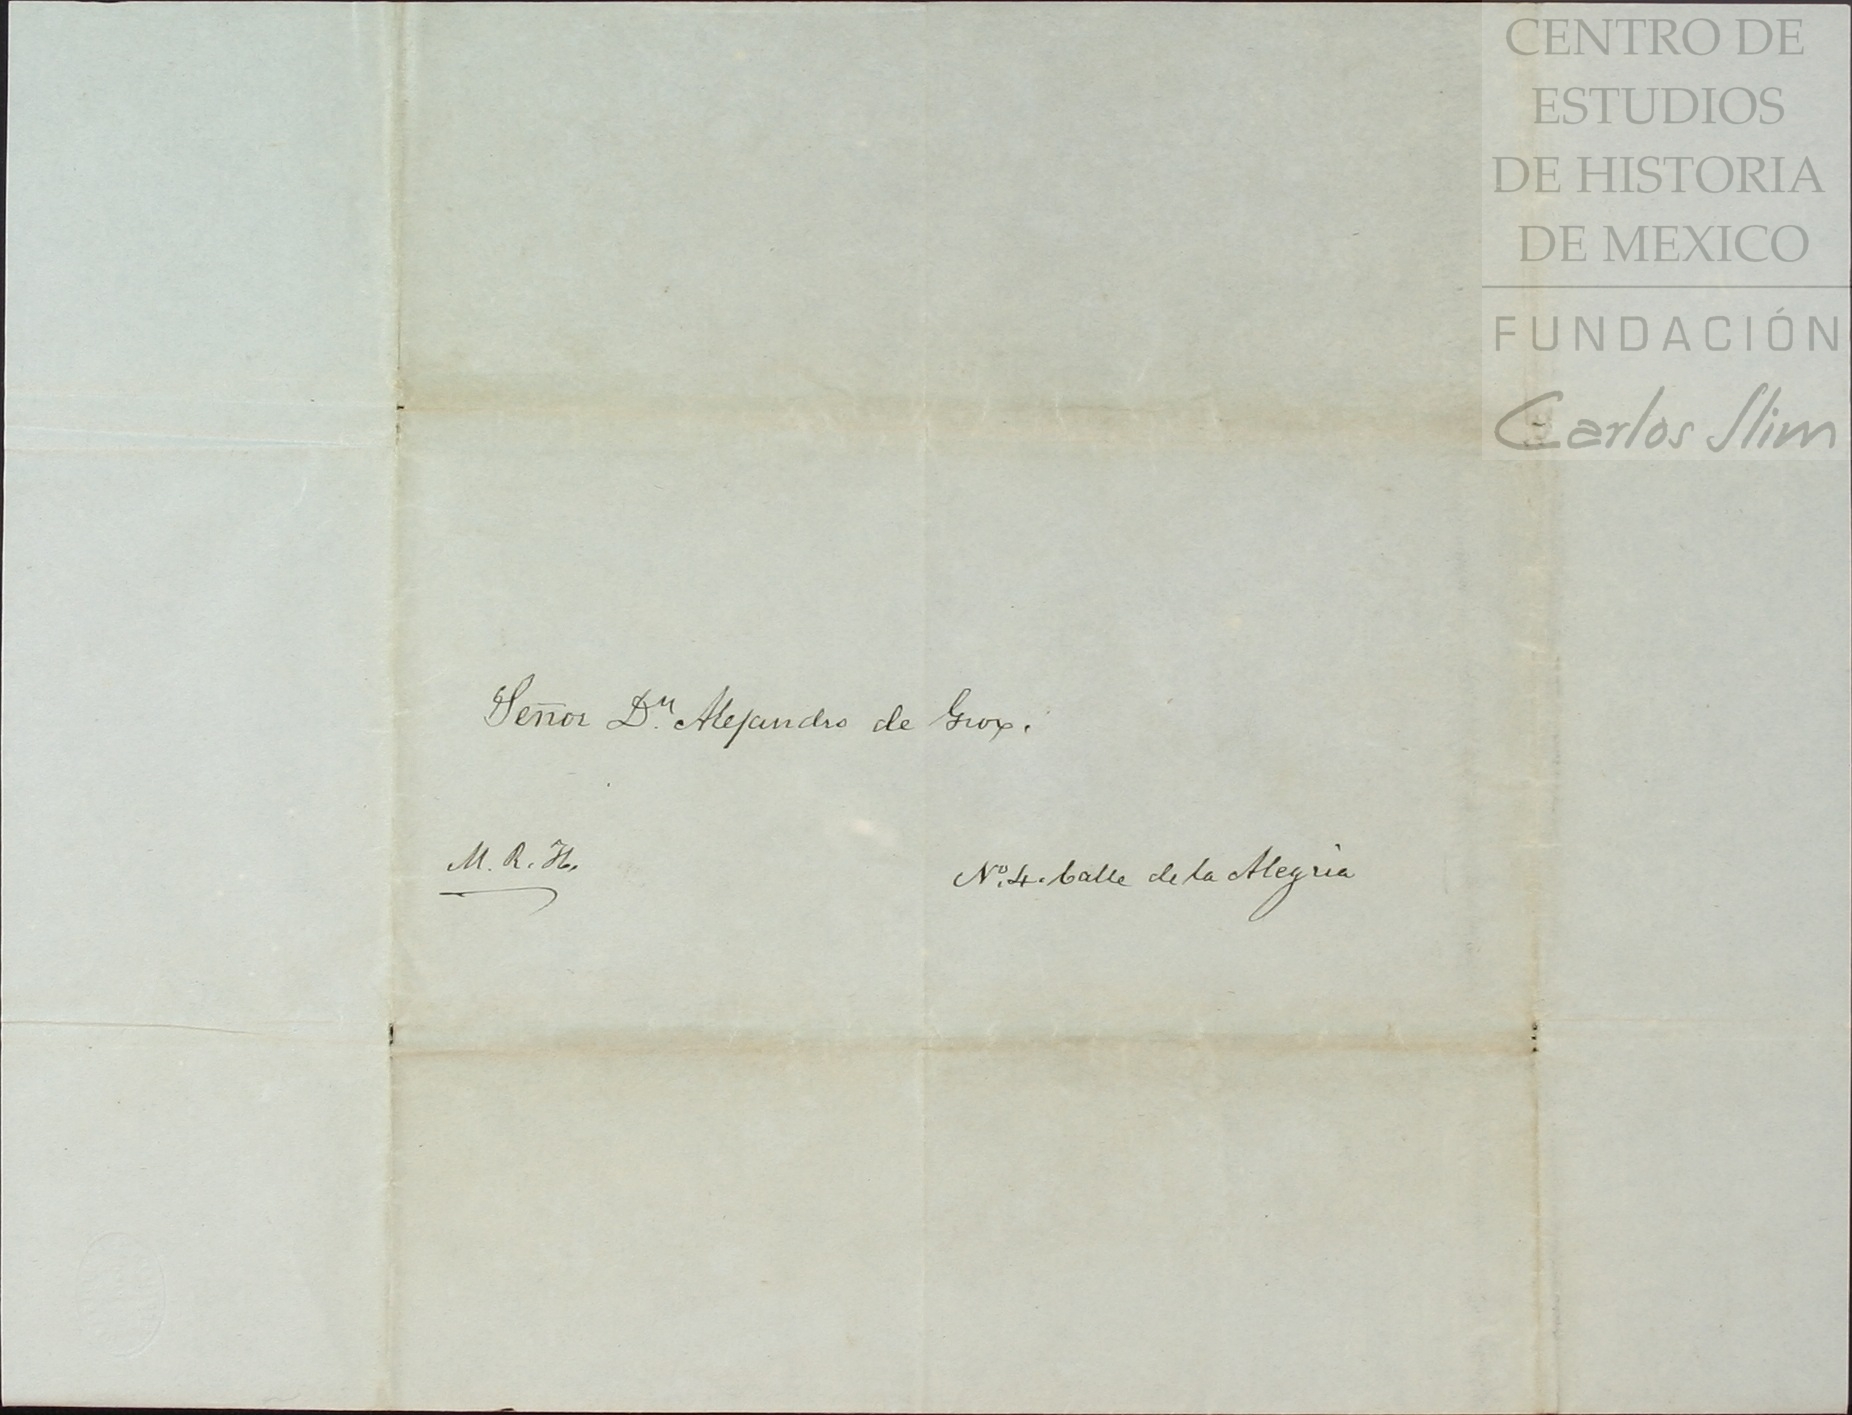 CENTRO DE
ESTUDIOS
DE HISTORIA
DE MEXICO
FUNDACIÓN
Carlos Slim
Señor Dn. Alejandro de Grox.
M. R. H.
No. 4. Calle de la Alegria